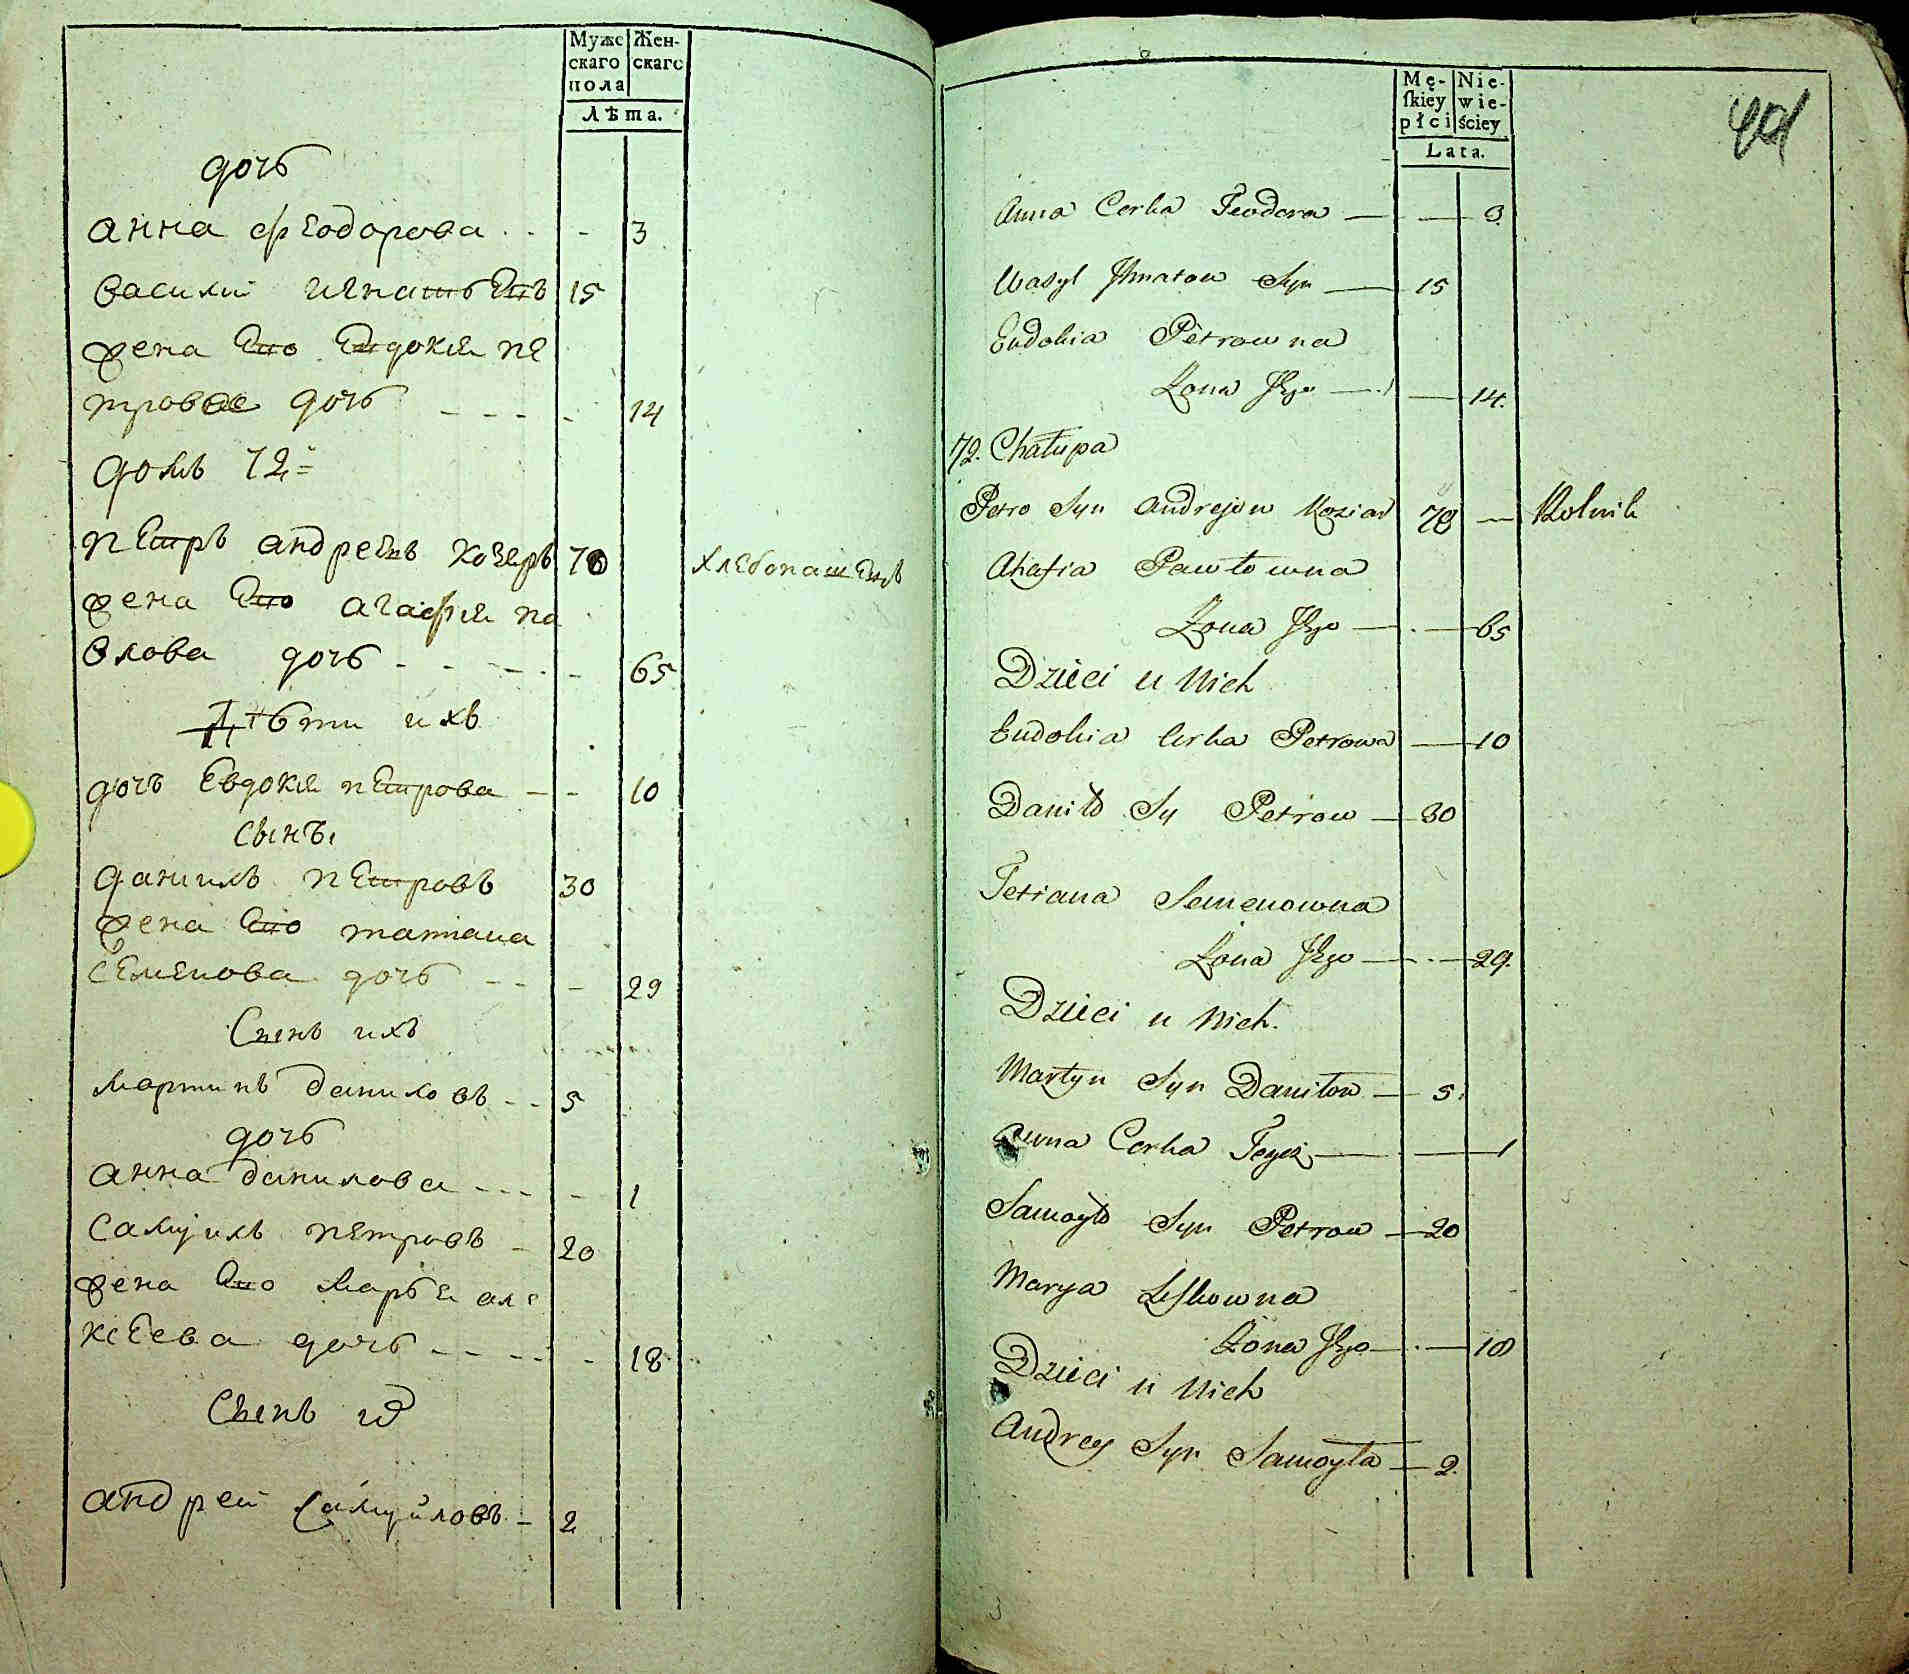 Мужс
скаго
пола
Жен-
скаго
Лѣта.
дочь
анна феодорова - 3
василий игнатьевъ 15
жена Его Евдокия пе
трова дочь - - - - 14
домъ 72
петръ андреевъ козяръ 70 хлебопашецъ
жена Его агафия па
влова дочь - - - - 65
Дѣти ихъ
дочь Евдокия петрова - - 10
сынъ
даниилъ петровъ 30
жена Его татиана
семенова дочь - - - 29
Сынъ ихъ
мартинъ даниловъ - - 5
дочь
анна данилова - - - - 1
самуилъ петровъ - 20
жена Его марья але
ксеева дочь - - - - - 18
Сынъ
андрей самуйловъ - 2
Mę-
skiey
płci
Nie-
wie-
ściey
Lata.
Anna Corka Teodora — — 3
Wasyl Syn — 15
Eudokia Petrowna
Żona Jego — — 14.
72. Chałupa
Petro Syn Andrejow Koziar 78 — Rolnik
Ahafia Pawłowna
Żona Jego — — 65
Dzieci u Nich
Eudokia Corka Petrowa — 10
Daniło Sy Petrow — 30
Tetiana Semenowna
Żona Jego — — 29.
Dzieci u Nich.
Martyn Syn Daniłow — 5.
Anna Corka Tegoż — — 1
Samoyło Syn Petrow — 20
Marya Leskowna
Żona Jego — — 18
Dzieci u Nich
Andrey Syn Samoyła — 2.